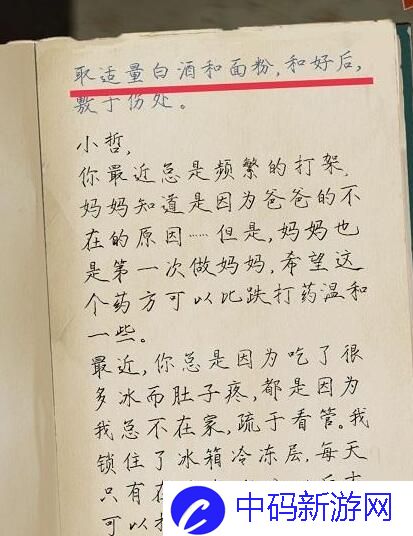 取适量白酒和面粉,和好后,
敷于伤处。
小哲,
你最近总是频繁的打架,
妈妈知道是因为爸爸的不
在的原因……但是,妈妈也
是第一次做妈妈,希望这
个药方可以比跌打药温和
一些。
最近,你总是因为吃了很
多冰而肚子疼,都是因为
我总不在家,疏于看管。我
锁住了冰箱冷冻层,每天
只有在
可以
中码新游网